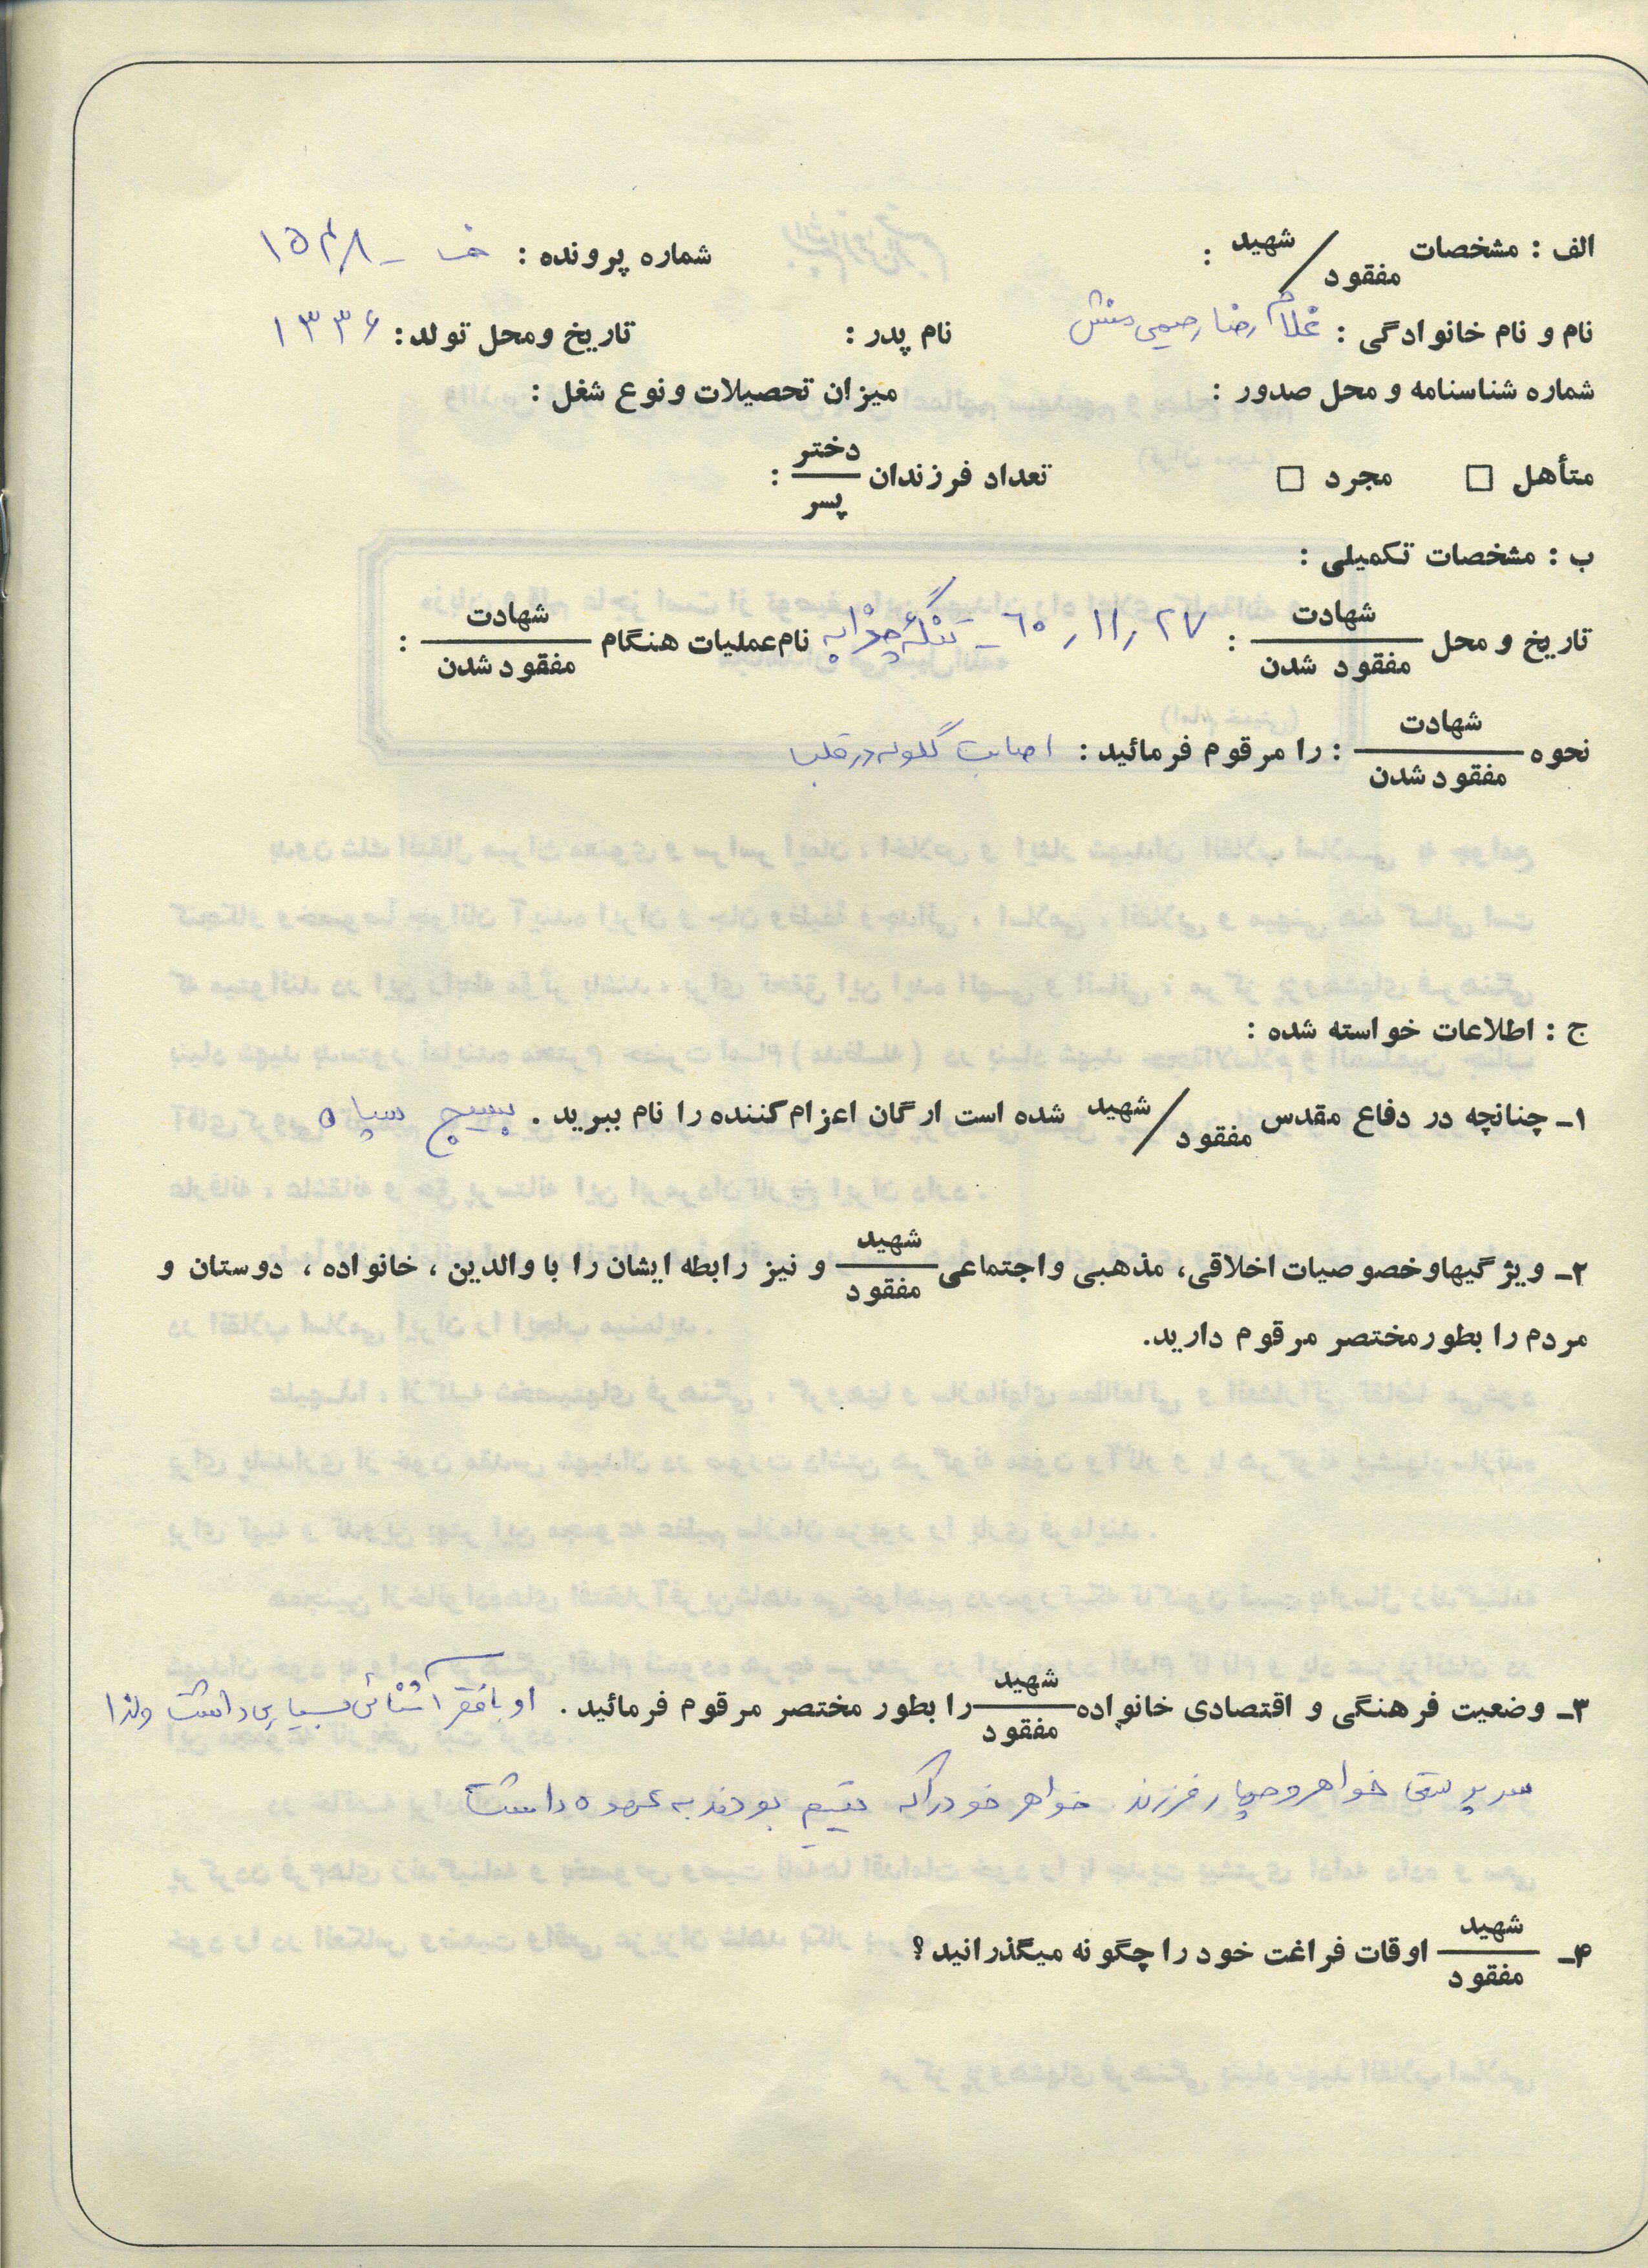 الف : مشخصات شهید / مفقود : شماره پرونده : خ - ۱۵۴۸
نام و نام خانوادگی : غلامرضا رحیمی منش نام پدر : تاریخ ومحل تولد : ۱۳۳۶
شماره شناسنامه و محل صدور : میزان تحصیلات و نوع شغل :
متأهل □ مجرد □ تعداد فرزندان دختر / پسر :
ب : مشخصات تکمیلی :
تاریخ و محل شهادت / مفقود شدن : ۲۷ ر ۱۱ ر ۶۰ - تنگه چزابه نام عملیات هنگام شهادت / مفقود شدن :
نحوه شهادت / مفقود شدن : را مرقوم فرمائید : اصابت گلوله در قلب
ج : اطلاعات خواسته شده :
۱ـ چنانچه در دفاع مقدس شهید / مفقود شده است ارگان اعزام کننده را نام ببرید . بسیج سپاه
۲ـ ویژگیها و خصوصیات اخلاقی، مذهبی و اجتماعی شهید / مفقود و نیز رابطه ایشان را با والدین ، خانواده ، دوستان و
مردم را بطور مختصر مرقوم دارید.
۳ـ وضعیت فرهنگی و اقتصادی خانواده شهید / مفقود را بطور مختصر مرقوم فرمائید . او با فقر آشنائی بسیاری داشت ولذا
سرپرستی خواهر و چهار فرزند خواهر خود را که یتیم بودند به عهده داشت
۴ـ شهید / مفقود اوقات فراغت خود را چگونه میگذرانید ؟